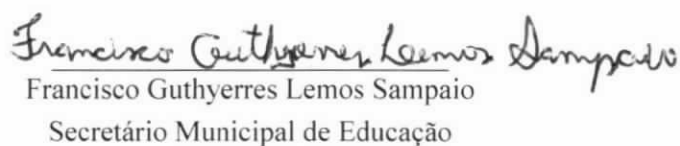 Francisco Guthyerres Lemos Sampaio
Francisco Guthyerres Lemos Sampaio
Secretário Municipal de Educação